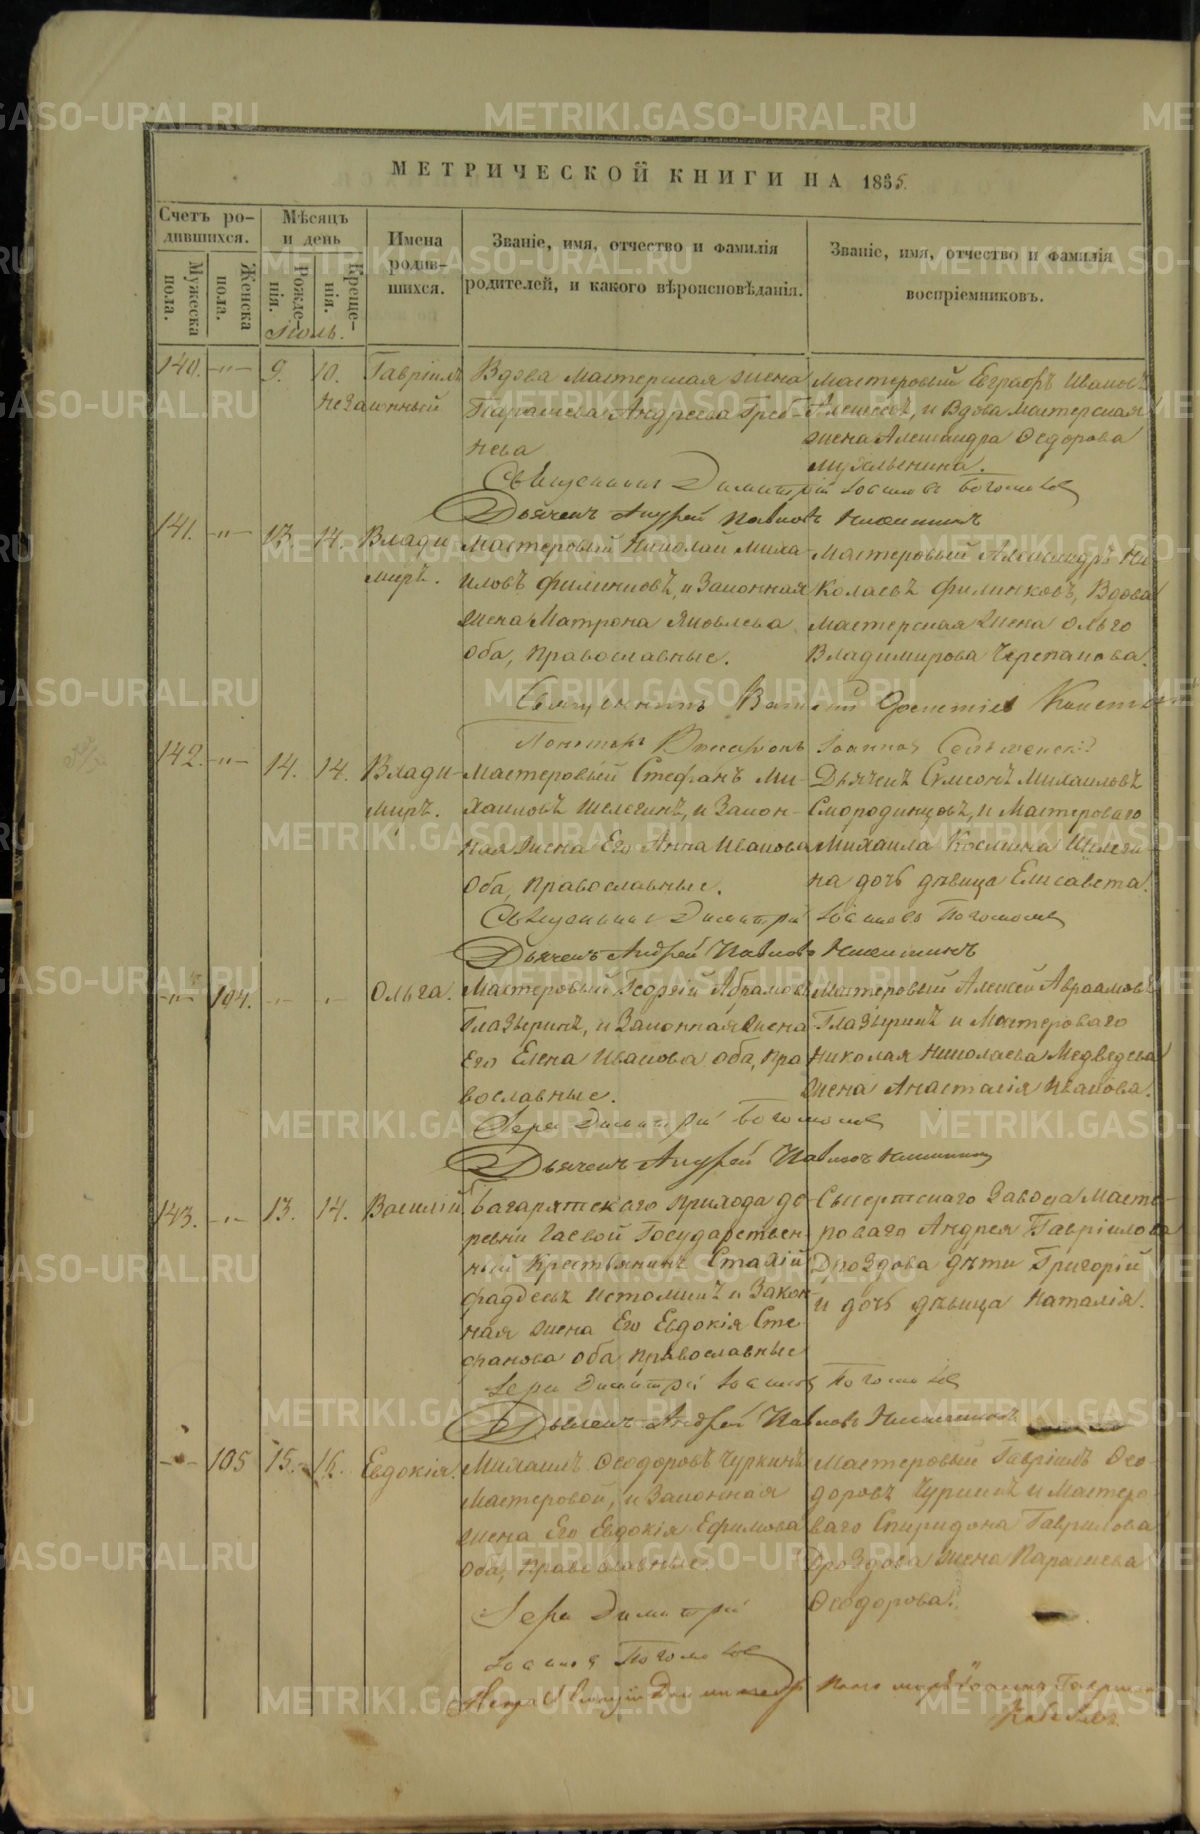 МЕТРИЧЕСКОЙ КНИГИ НА 1855.
Счетъ ро-
дившихся.
Мѣсяцъ
и день
Имена
родив-
шихся.
Званіе, имя, отчество и фамилія
родителей, и какого вѣроисповѣданія.
Званіе, имя, отчество и фамилія
воспріемниковъ.
Мужеска
пола.
Женска
пола.
Рожде-
нія.
Креще-
нія.
Іюль.
140. -"- 9. 10. Гавріилъ
незаконный
Вдова мастерская жена
Параскева Андреева Греб-
нева
Мастеровый Евграфъ Ивановъ
и Вдова мастерская
жена Александра Ѳедорова
Священникъ Димитрій Іоанновъ Богомолов
Дьячекъ Андрей Павловъ
141. -"- 13. 14. Влади
миръ.
Мастеровый Николай Миха
иловъ Филинковъ, и Законная
жена Матрона Яковлева
оба, православные.
Мастеровый Александръ Ни
колаевъ Филинковъ, Вдова
мастерская жена Ольга
Владимирова Черепанова.
Священникъ
Іоаннов
142. -"- 14. 14. Влади-
миръ.
Мастеровый Стефанъ Ми-
хаиловъ Шелегинъ, и Закон-
ная жена Его Анна Иванова
Оба, православные.
Дьячекъ Симеонъ Михаиловъ
Смородинцовъ, и Мастероваго
Михаила Космина Шелеги-
на дочь дѣвица Елисавета.
Священникъ Димитрій Іоаннов Богомолов
Дьячекъ Андрей Павловъ
-"- 104. -"- -"- Ольга.
Мастеровый Георгій Абрамовъ
Глазыринъ, и Законная жена
Его Елена Иванова оба, пра
вославные.
Мастеровый Алексей Авраамовъ
Глазыринъ и Мастероваго
Николая Николаева Медведева
жена Анастасія Иванова.
Іерей Димитрій Богомолов
Дьячекъ Андрей Павловъ
143. -"- 13. 14. Василій
Багарятскаго прихода де
ревни Гаевой Государствен
ный Крестьянинъ Стахій
Фаддеевъ Истоминъ и Закон-
ная жена Его Евдокія Сте
фанова оба, православные
Сысертскаго Завода Масте-
роваго Андрея Гавріилова
Дроздова дѣти Григорій
и дочь дѣвица Наталія.
Іерей Димитрій Іоаннов Богомолов
Дьячекъ Андрей Павловъ
-"- 105 15. 16. Евдокія.
Михаилъ Ѳеодоровъ Чуркинъ
Мастеровой, и Законная
жена Его Евдокія Ефимова
Оба, православные.
Мастеровый Гавріилъ Ѳео-
доровъ Чуркинъ и Мастеро-
ваго Спиридона Гаврилова
Дроздова жена Параскева
Ѳеодорова.
Іерей Димитрій
Іоаннов Богомолов
METRIKI.GASO-URAL.RU